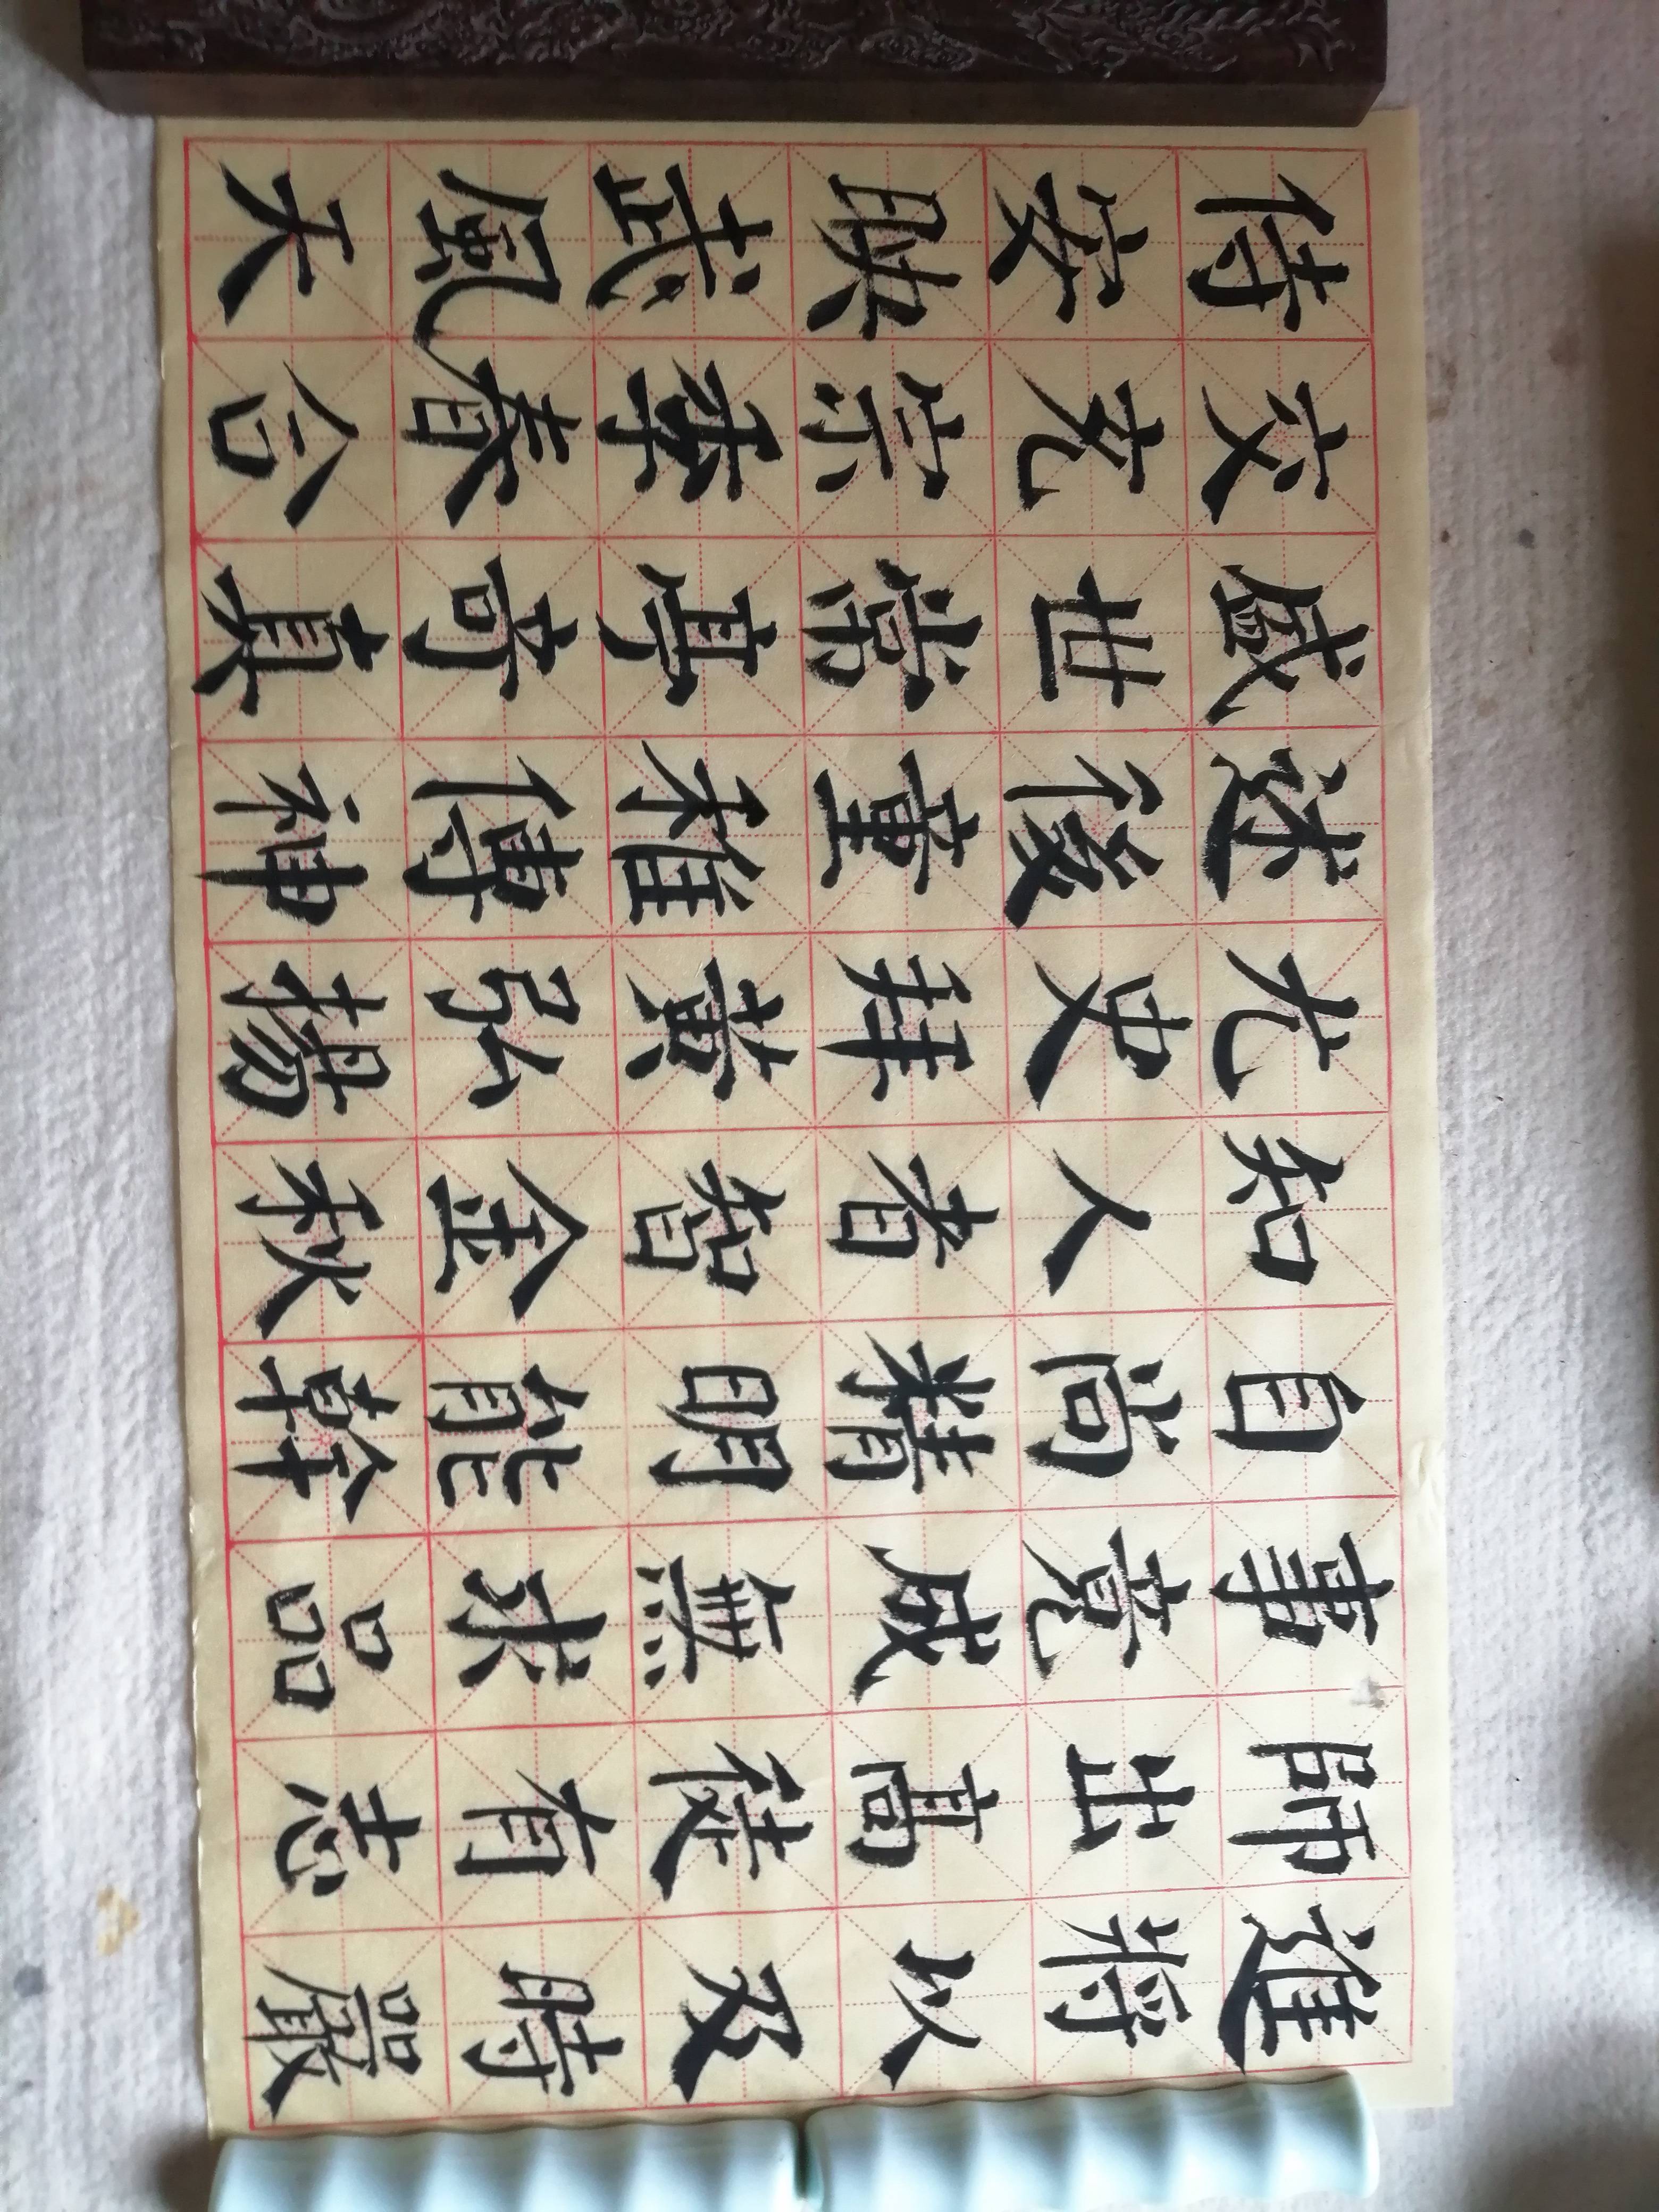 進將以及時嚴
師出高徒有志
事竟成無求品
自尚精明能幹
知人者智金秋
尤史拜黄弘揚
述後童稚傳神
盛世常亭奇真
交充宗季春合
侍安映武風天